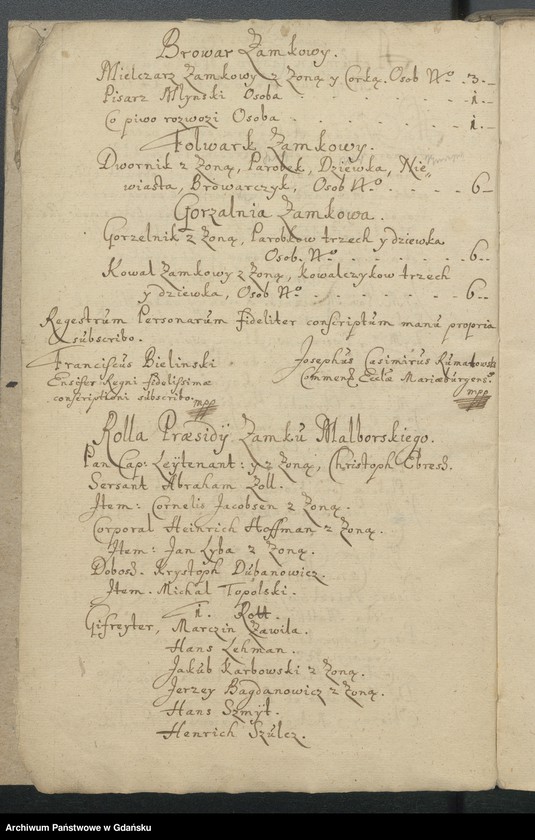 Browar Zamkowy.
Mielczarz Zamkowy z Zoną y Corką. Osob No. 3. _
Pisarz Mlynski Osoba . . . . . . 1. _
Co piwo rozwozi Osoba . . . . . . 1. _
Folwark Zamkowy.
Dwornik z Zoną, Parobek, Dziewka, Nie„
wiasta, Browarczyk, Osob No. . . . . 6 _
Gorzalnia Zamkowa.
Gorzelnik z Zoną, Parobkow trzech y dziewka
Osob. No. . . . . . 6..
Kowal Zamkowy z Zoną, kowalczykow trzech
y dziewka, Osob No. . . . . . . 6..
Regestrum Personarum Fideliter conscriptum manu propria
subscribo.
Franciscus Bielinski
Ensifer Regni fidelissimæ
conscriptioni subscribo. mpp
Josephus Casimirus
Commend. Ecclæ Mariæburgens.
mpp
Rolla Præsidÿ Zamku Malborskiego.
Pan Cap: Leÿtenant: y z Zoną, Christoph Ebresz.
Sersant Abraham Zoll.
Item: Cornelis Jacobsen z Zoną.
Corporal Heinrich Hoffman z Zoną.
Item: Jan Lyba z Zoną.
Dobosz. Krystoph Dubanowicz.
Item. Michal Topolski.
1. Rott.
Gifreyter, Marczin Zawila.
Hans Lehman.
Jakub Karbowski z Zoną.
Jerzey Bagdanowicz z Zoną.
Hans Szmÿt.
Henrich Szulcz.
Archiwum Państwowe w Gdańsku